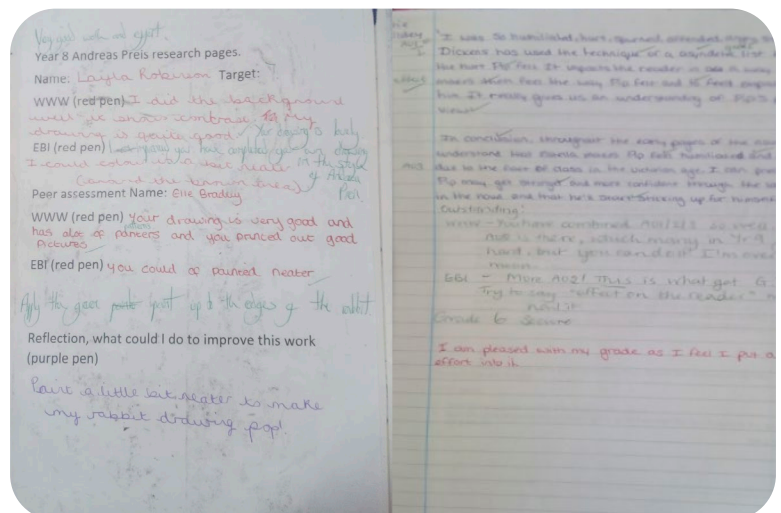 Very good work and effort.
Year 8 Andreas Preis research pages.
Name: Layla Robinson Target:
WWW (red pen) I did the background
well it shows contrast. My
drawing is quite good.
EBI (red pen)
I could colour is a bit neater
(around the brown area)
in the style
of Andreas
Preis
Peer assessment Name: Elle Bradley
WWW (red pen) Your drawing is very good and
has alot of patterns and you printed out good
pictures
EBI (red pen) you could of painted neater
Apply the green paint up to the edges of the rabbit
Reflection, what could I do to improve this work
(purple pen)
Paint a little bit neater to make
my rabbit drawing pop!
"I was so humiliated, hurt, spurned, offended, angry s
Dickens has used the technique of a asyndetic list
the hurt Pip felt. It impacts the reader
makes them feel the way Pip felt and to feel
him. It really gives us an understanding of Pip's
views.
In conclusion, throughout the early pages of the
understand that Estella makes Pip feel humiliated and
due to the fact of class in the victorian age. I can
Pip may get stronger and more confident through the
in the novel and that he'll start sticking up for himself
Outstanding!
WWW - You have combined AO1/2/3 so well
AO3 is there, which many in Yr 9
hard, but you can do it! I'm over
moon.
EBI - More AO2! This is what get G
Try to say "effect on the reader"
Grade 6 Secure
I am pleased with my grade as I feel I put a
effort into it.